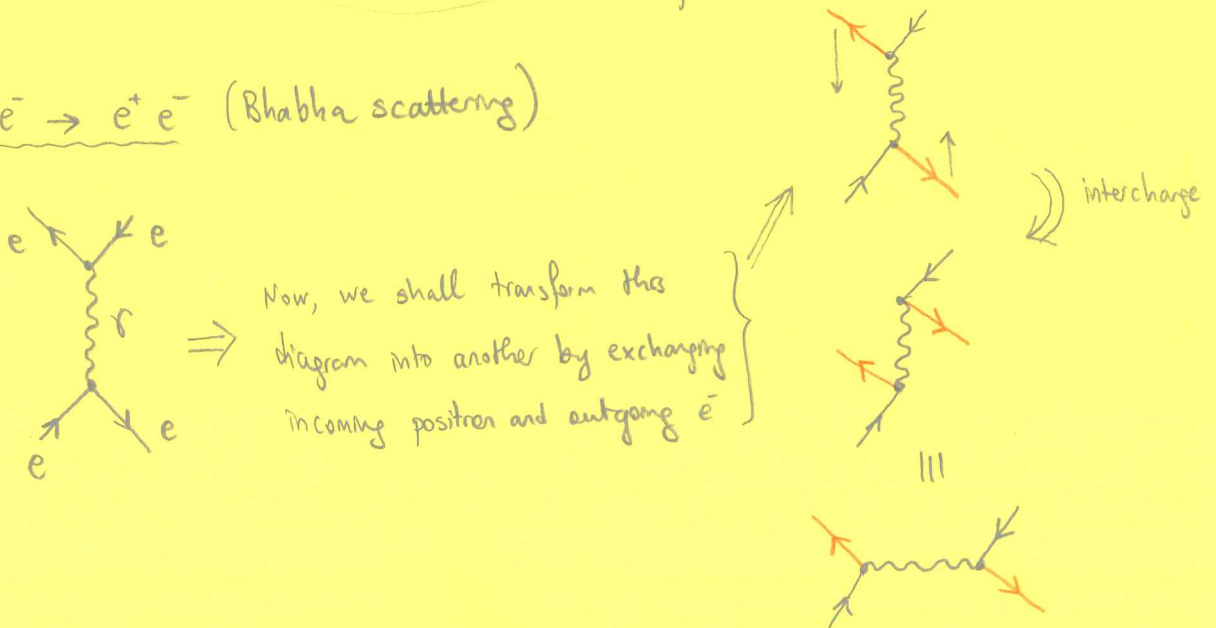 e⁻ → e⁺ e⁻ (Bhabha scattering)
e e
γ
e e
⇒ Now, we shall transform this
diagram into another by exchanging
incoming positron and outgoing e⁻
interchange